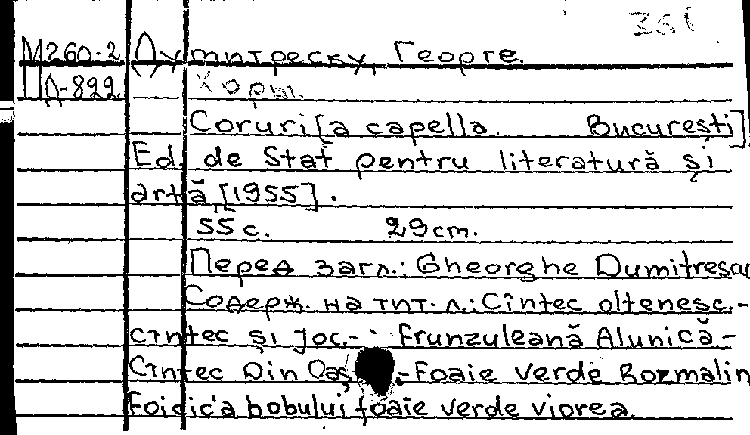 351
М260-2 Думитреску, Георге.
Д-822 Хоры.
Coruri [a capella. București]
Ed. de Stat pentru literatură și
artă [1955].
55 с. 29 cm.
Перед загл.: Gheorghe Dumitrescu
Содерж. на тит. л.: Cîntec oltenesc.-
Cîntec și joc.- Frunzuleană Alunică-
Cîntec Din Oaș.-Foaie verde Rozmalin
Foicica bobului foaie verde viorea.